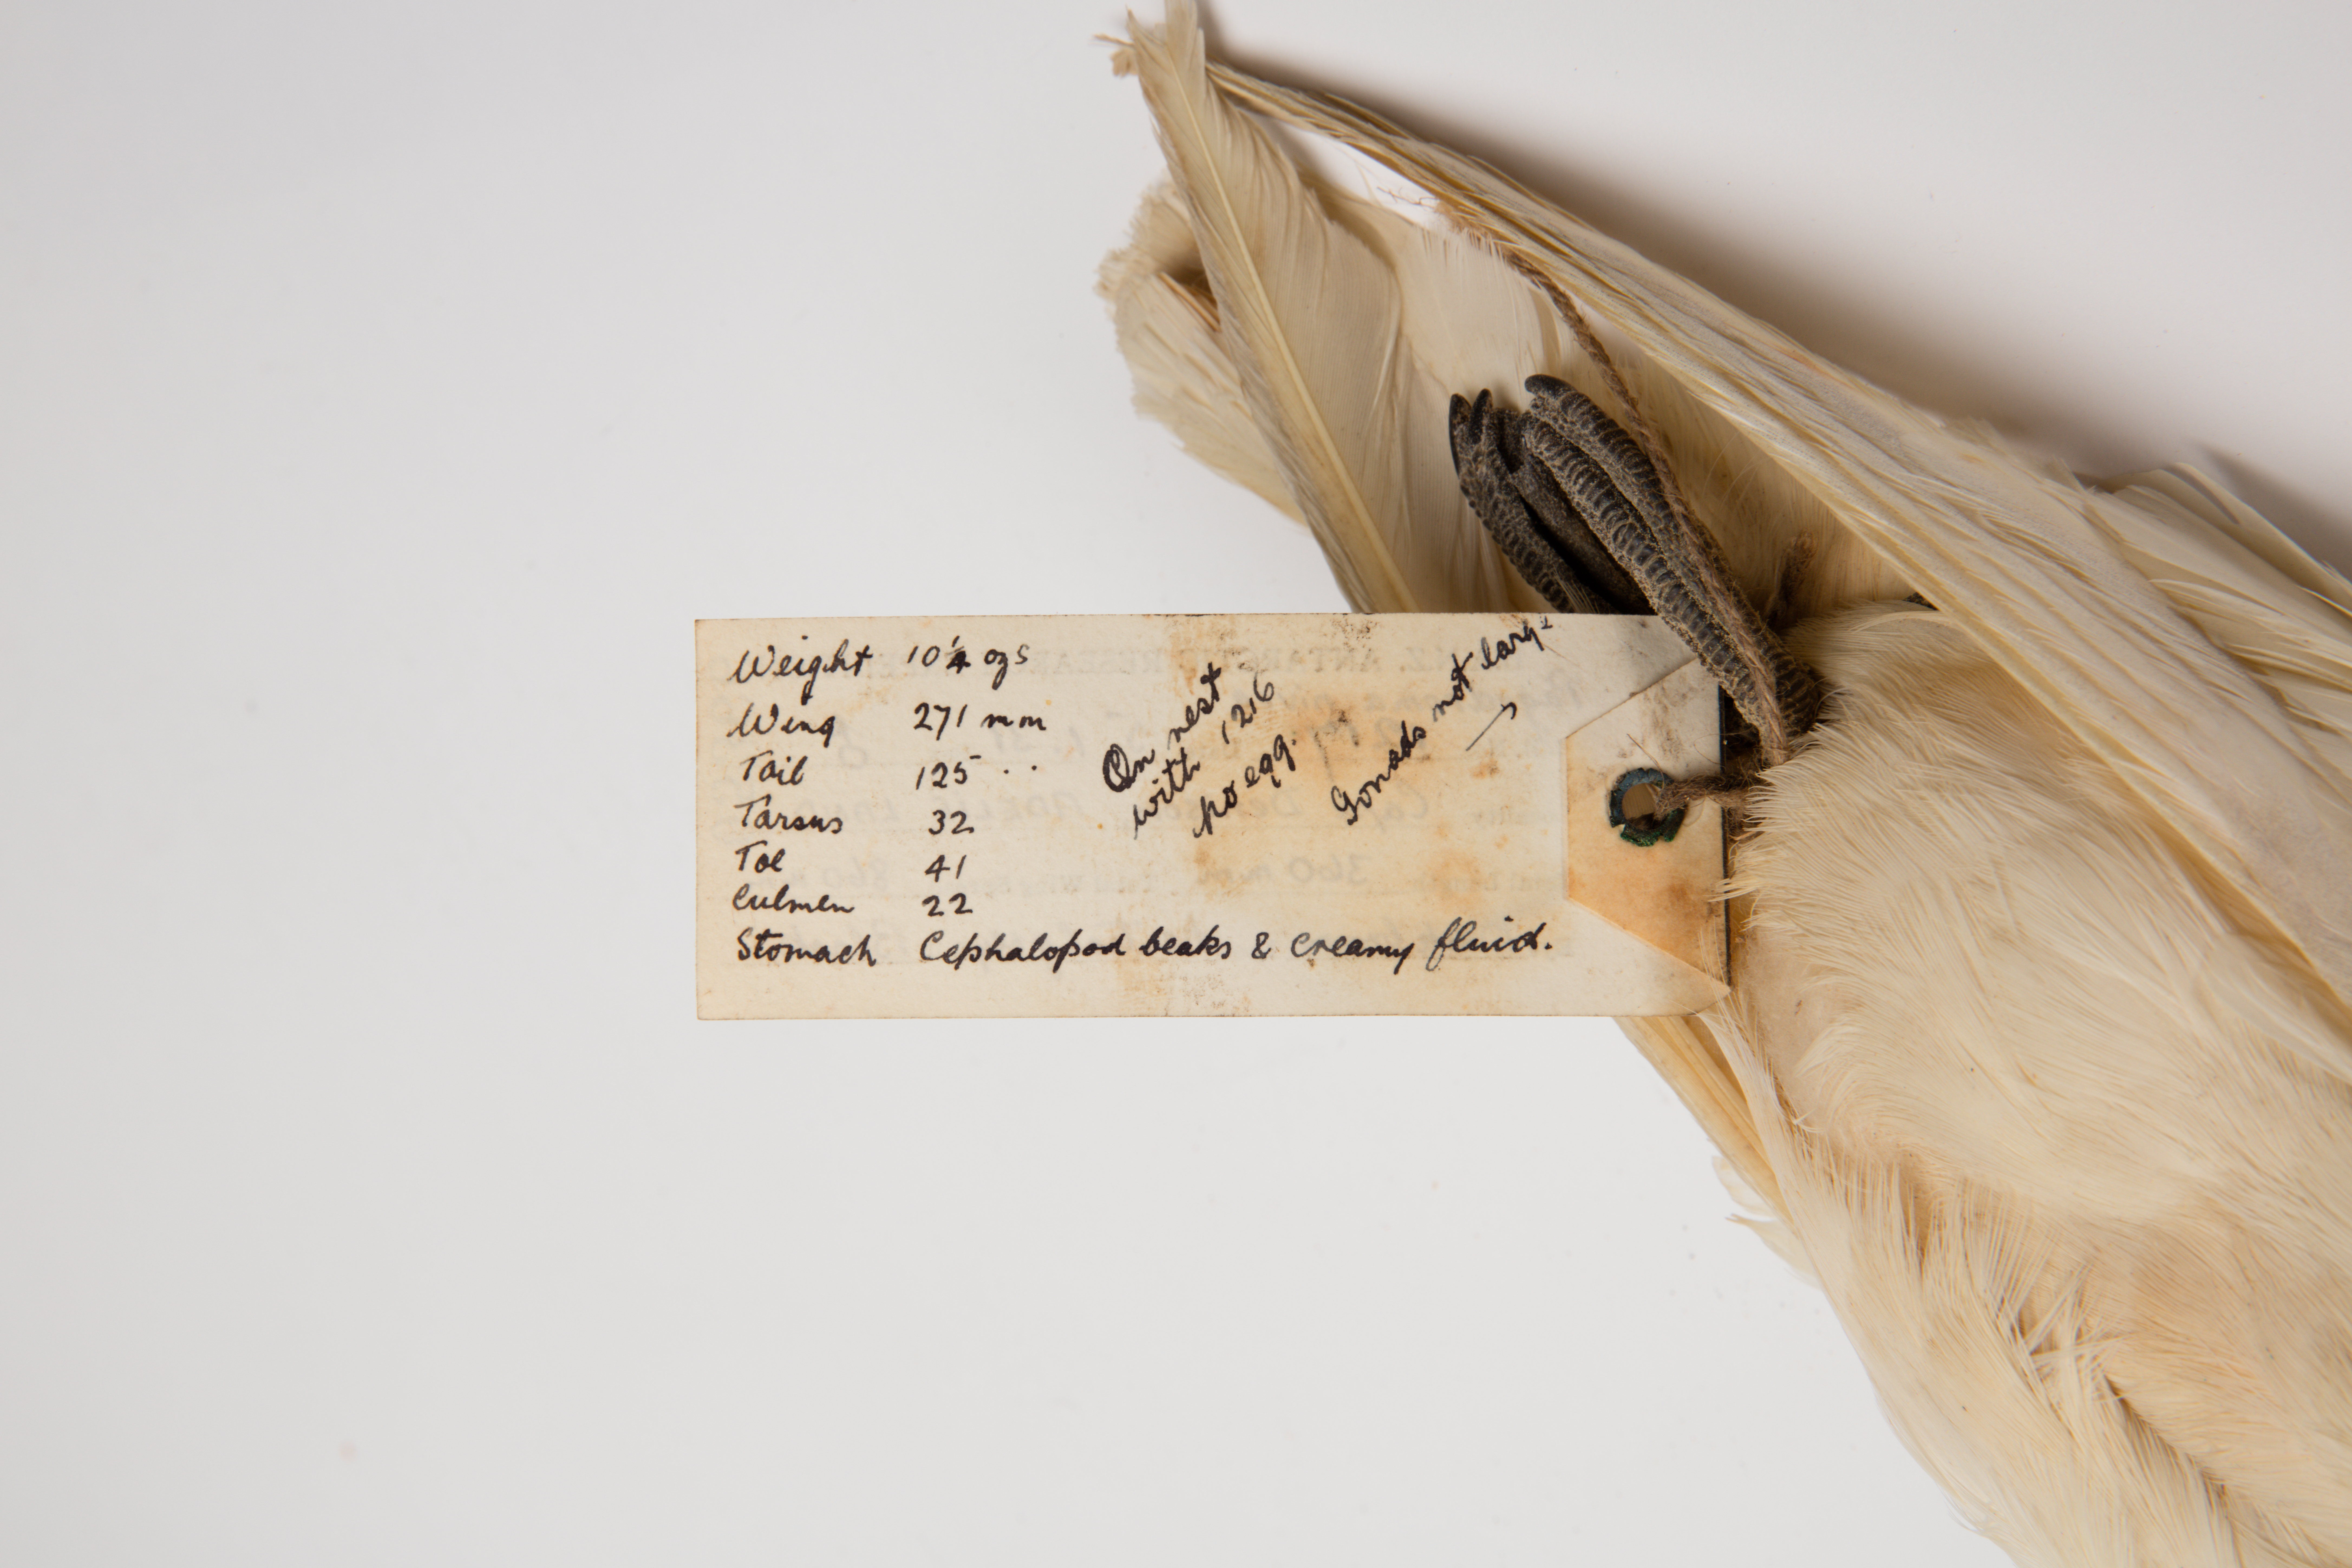 Weight 10¼ ozs
Wing 271 mm
Tail 125 . .
Tarsus 32
Toe 41
Culmen 22
Stomach Cephalopod beaks & creamy fluid.
On nest
with 1216
no egg.
Gonads not large